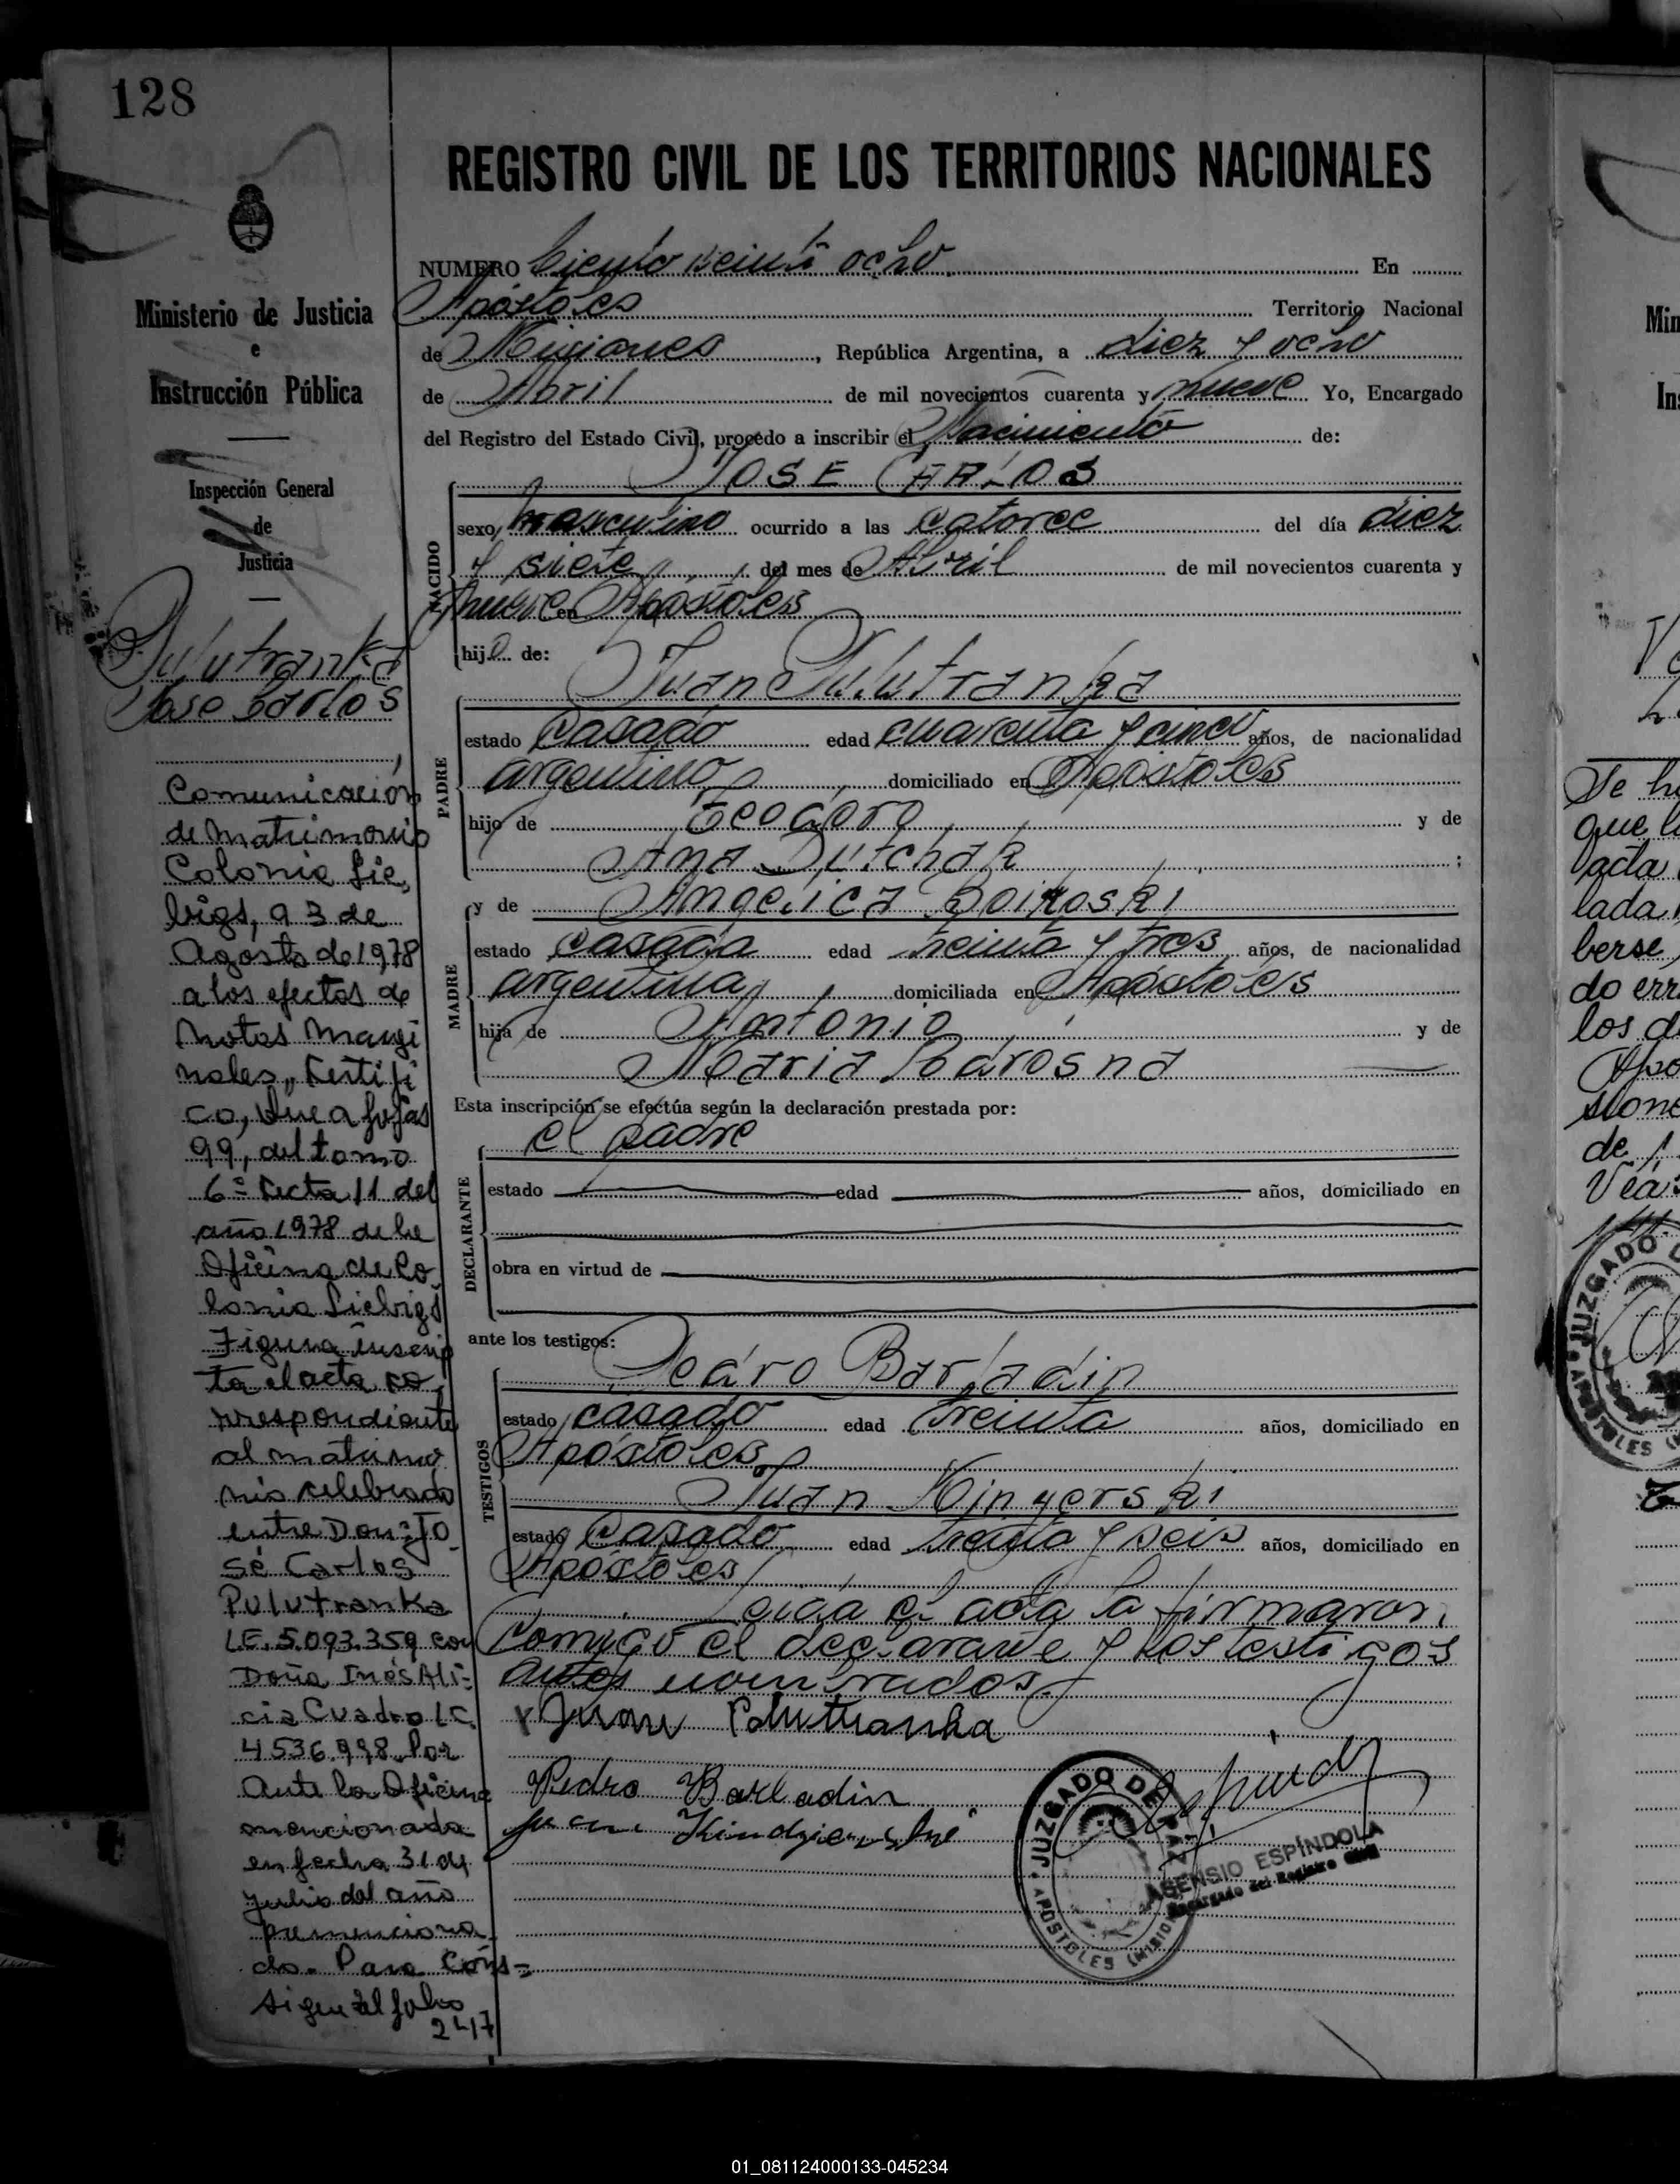 128
REGISTRO CIVIL DE LOS TERRITORIOS NACIONALES
Ministerio de Justicia
e
Instrucción Pública
Inspección General
de
Justicia
Pulutranka
Jose Carlos
Comunicación
de Matrimonio
Colonia Lie,
bigs, a 3 de
Agosto de 1978
a los efectos de
notas Margi
nales, Certifi
co, que a fojas
99, del tomo
6º Acta 11 del
año 1978 de la
Oficina de Co,
lonia Liebigs
Figura inscrip
ta el acta co,
rrespondiente
al matrimo
nio celebrado
entre Don: Jo
sé Carlos
Pulutranka
LE. 5.093.359 con
Doña Inés Ali=
cia Cuadro LC.
4536.998. Por
Ante la Oficina
mencionada
en fecha 31 de
Julio del año
premenciona
do. Para Cons=
sigue al folio
247
NUMERO Ciento veinte ocho En
Apóstoles Territorio Nacional
de Misiones, República Argentina, a diez y ocho
de Abril de mil novecientos cuarenta y nueve Yo, Encargado
del Registro del Estado Civil, procedo a inscribir el Nacimiento de:
JOSE CARLOS
NACIDO
sexo masculino ocurrido a las catorce del día diez
y siete, del mes de Abril de mil novecientos cuarenta y
nueve en Apóstoles
hijo de:
Juan Pulutranka
PADRE
estado Casado edad cuarenta y cinco años, de nacionalidad
argentino, domiciliado en Apóstoles
hijo de Teodoro y de
Ana ;
y de Angelica Boikoski
MADRE
estado casada edad treinta y tres años, de nacionalidad
argentina, domiciliada en Apóstoles
hija de Antonio y de
Maria
Esta inscripción se efectúa según la declaración prestada por:
el padre
DECLARANTE
estado edad años, domiciliado en
obra en virtud de
ante los testigos:
Pedro Barladin
TESTIGOS
estado casado edad treinta años, domiciliado en
Apóstoles
Juan Kingerski
estado Casado edad treinta y seis años, domiciliado en
Apóstoles
Leida el acta la firmaron,
comigo el declarante y los testigos
antes nombrados.
Juan Pulutranka
Pedro Barladin
Juan Kindzierski
JUZGADO DE PAZ
APOSTOLES (MISIONES
ASENSIO ESPÍNDOLA
Encargado del Registro Civil
01_081124000133-045234